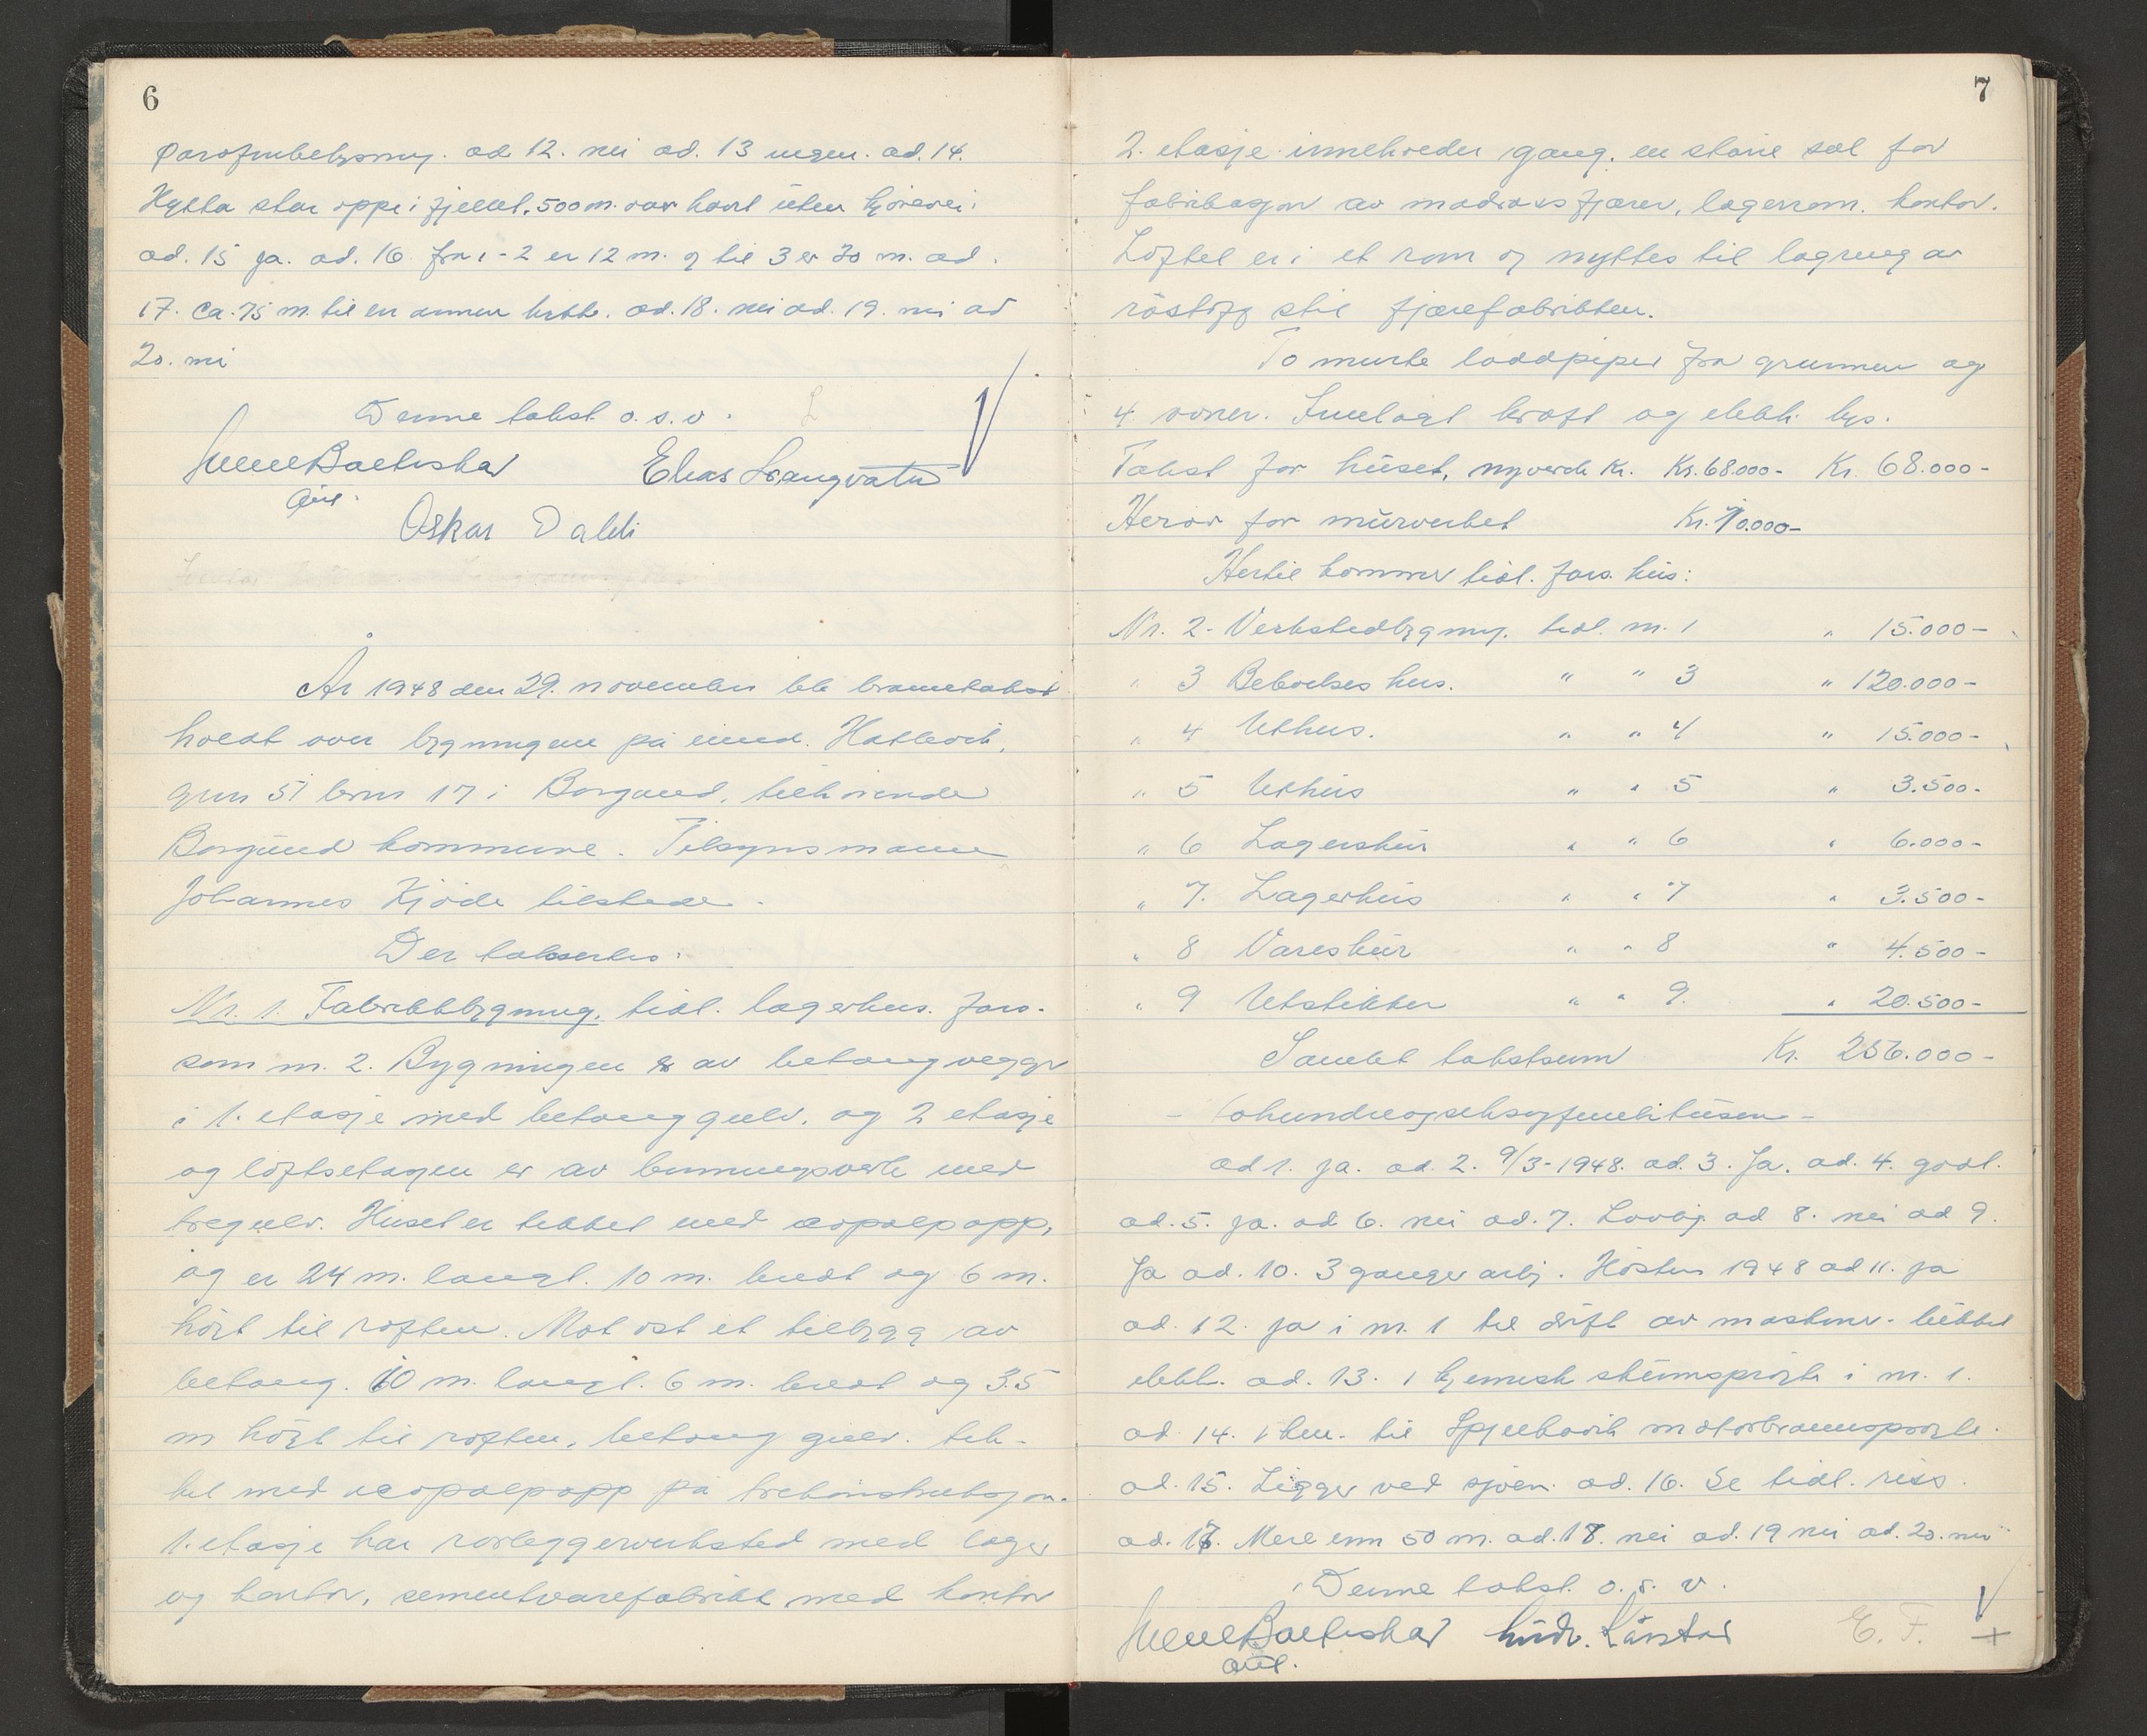 6
Parafinbelysning. ad 12. nei ad. 13 ingen. ad. 14.
Hytta står oppe i fjellet, 500 m. oav haat uten kjørevei.
ad. 15 ja. ad. 16. fra 1-2 er 12 m. og til 3 er 30 m. ad.
17. ca. 75 m. til en annen hytte. ad. 18. nei ad. 19. nei ad
20. nei
Denne takst o. s. v.
Elias Langvatn
Oskar Dahli
År 1948 den 29. november ble branntakst
holdt over bygningene på eiend. Hatlevik,
gnr 51 brnr 17 i Borgund, tilhørende
Borgund kommune. Tilsynsmann
Johannes Kjøde tilstede.
Der takseertes:
Nr. 1. Fabrikkbygning, tidl. lagerhus. fors.
som nr. 2. Bygningen er av betongvegger
i 1. etasje med betonggulv, og 2 etasje
og loftsetagen er av binningsverk med
tregulv. Huset er tekket med asopalpapp,
og er 24 m. langt. 10 m. bredt og 6 m.
høit til røsten. Mot øst et tilbygg av
betong. 10 m. langt. 6 m. bredt og 3.5
m høgt til røften, betong gulv. tek-
ket med asopalpapp på trekonstruksjon.
1. etasje har rørleggerverksted med lager
og kontor, sementvarefabrikk med kontor
7
2. etasje inneholder gang, en større sal for
fabrikasjon av madrassfjærer, lagerrom. kontor.
Loftet er i et rom og nyttes til lagring av
råstoff til fjærefabrikken.
To murte loddpiper fra grunnen og
4 ovner. Innlagt kraft og elektr. lys.
Takst for huset, nyverdi Kr. Kr. 68.000- Kr. 68.000-
Herav for murverket Kr. 10.000-
Hertil kommer tidl. fors. hus:
Nr. 2- Verkstedbygning. tidl. nr. 1 " 15.000-
" 3 Beboelseshus. " " 3 " 120.000-
" 4 Uthus. " " 4 " 15.000-
" 5 Uthus " " 5 " 3.500-
" 6 Lagerskur " " 6 " 6.000-
" 7. Lagerhus " " 7 " 3.500-
" 8 Vareskur " " 8 " 4.500-
" 9 Utstikker " " 9. " 20.500-
Samlet takstsum Kr. 256.000-
- tohundreogseksogfemtitusen -
ad 1. ja. ad. 2. 9/3-1948. ad. 3. Ja. ad. 4. godt.
ad. 5. ja. ad 6. nei ad. 7. Lovlig ad 8. nei ad 9.
Ja ad. 10. 3 ganger årlj. Høsten 1948 ad 11. ja
ad. 12. ja i nr. 1 til drift av maskiner. lukket
elektr. ad. 13. 1 kjemisk skumsprøyte i nr. 1.
ad. 14. 1 km. til Spjelkavik motorbrannsprøyte.
ad. 15. Ligger ved sjøen. ad. 16. Se tidl. riss.
ad. 17. Mere enn 50 m. ad. 18. nei ad. 19 nei ad. 20. nei
Denne takst. o. s. v.
E. F.